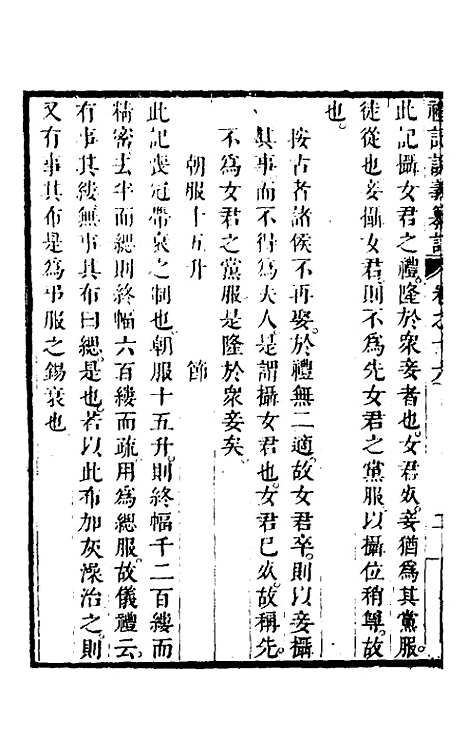 禮記識義纂言 卷之十六
此記攝女君之禮。隆於眾妾者也。女君死。妾猶為其黨服。
徒從也。妾攝女君。則不為先女君之黨服。以攝位稍尊。故
也。
按古者諸侯不再娶。於禮無二適。故女君卒。則以妾攝
其事而不得為夫人。是謂攝女君也。女君已死。故稱先。
不為女君之黨服。是隆於眾妾矣。
朝服十五升 節
此記喪冠帶衰之制也。朝服十五升。則終幅千二百縷而
精密。去半而緦。則終幅六百縷而疏。用為緦服。故儀禮云。
有事其縷無事其布曰緦。是也。若以此布加灰澡治之。則
又有事其布。是為弔服之錫衰也。